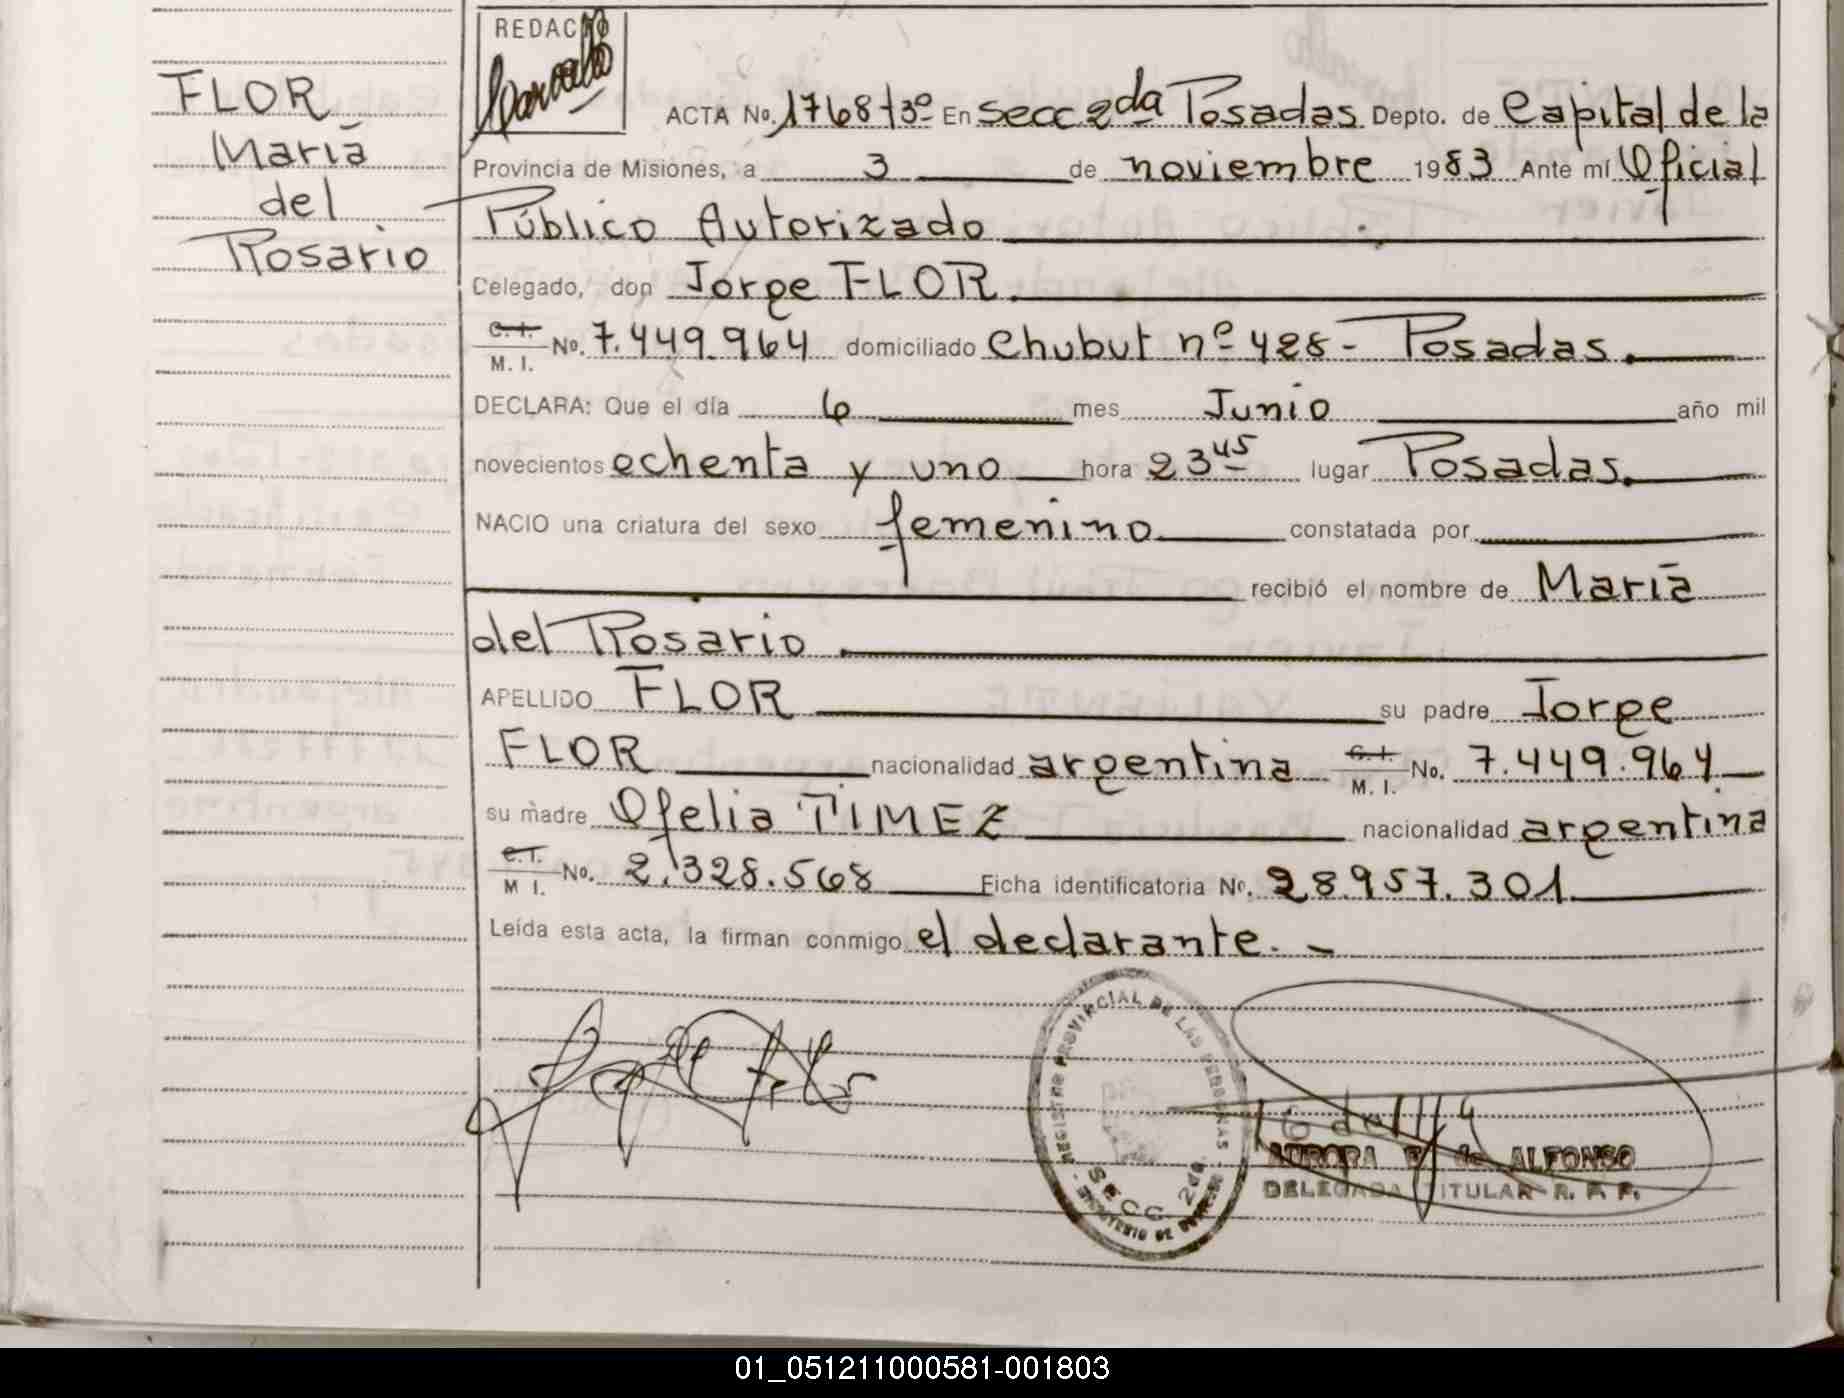 FLOR
María
del
Rosario
REDACTO
ACTA No. 1768 t3º En secc 2da Posadas Depto. de Capital de la
Provincia de Misiones, a 3 de noviembre 1983 Ante mí Oficial
Público Autorizado
Celegado, don Jorge FLOR.
C.I. M. I. No. 7.449.964 domiciliado Chubut nº 428- Posadas.
DECLARA: Que el día 6 mes Junio año mil
novecientos ochenta y uno hora 23 45 lugar Posadas.
NACIO una criatura del sexo femenino constatada por
recibió el nombre de María
del Rosario.
APELLIDO FLOR su padre Jorge
FLOR nacionalidad argentina C.I. M. I. No. 7.449.964
su madre Ofelia TIMEZ nacionalidad argentina
C.I. M I. No. 2.328.568 Ficha identificatoria No. 28.957.301
Leída esta acta, la firman conmigo el declarante. -
REGISTRO PROVINCIAL DE LAS PERSONAS
SECC 2da.
MINISTERIO DE GOBIERNO
AURORA de ALFONSO
DELEGADA TITULAR R. P. P.
01_051211000581-001803